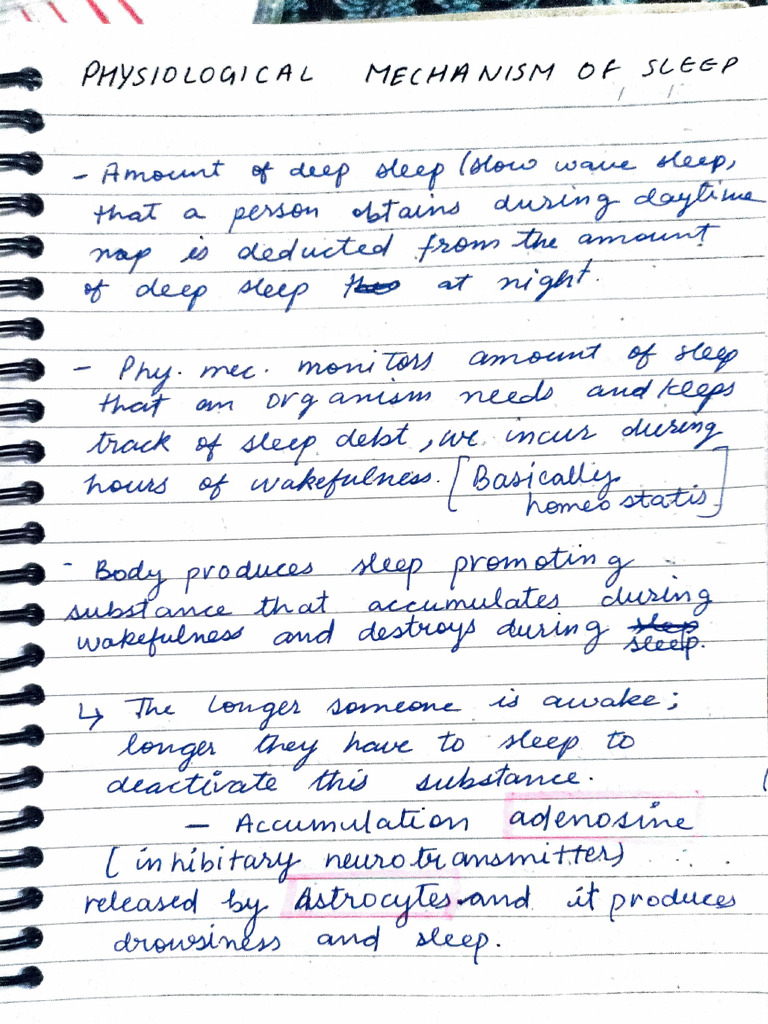 PHYSIOLOGICAL MECHANISM OF SLEEP
- Amount of deep sleep (slow wave sleep,
that a person obtains during daytime
nap is deducted from the amount
of deep sleep at night.
- Phy. mec. monitors amount of sleep
that an organism needs and keeps
track of sleep debt, we incur during
hours of wakefulness. [Basically
homeostatis]
- Body produces sleep promoting
substance that accumulates during
wakefulness and destroys during sleep
sleep.
↳ The longer someone is awake;
longer they have to sleep to
deactivate this substance.
- Accumulation adenosine
(inhibitary neurotransmitter)
released by Astrocytes and it produces
drowsiness and sleep.